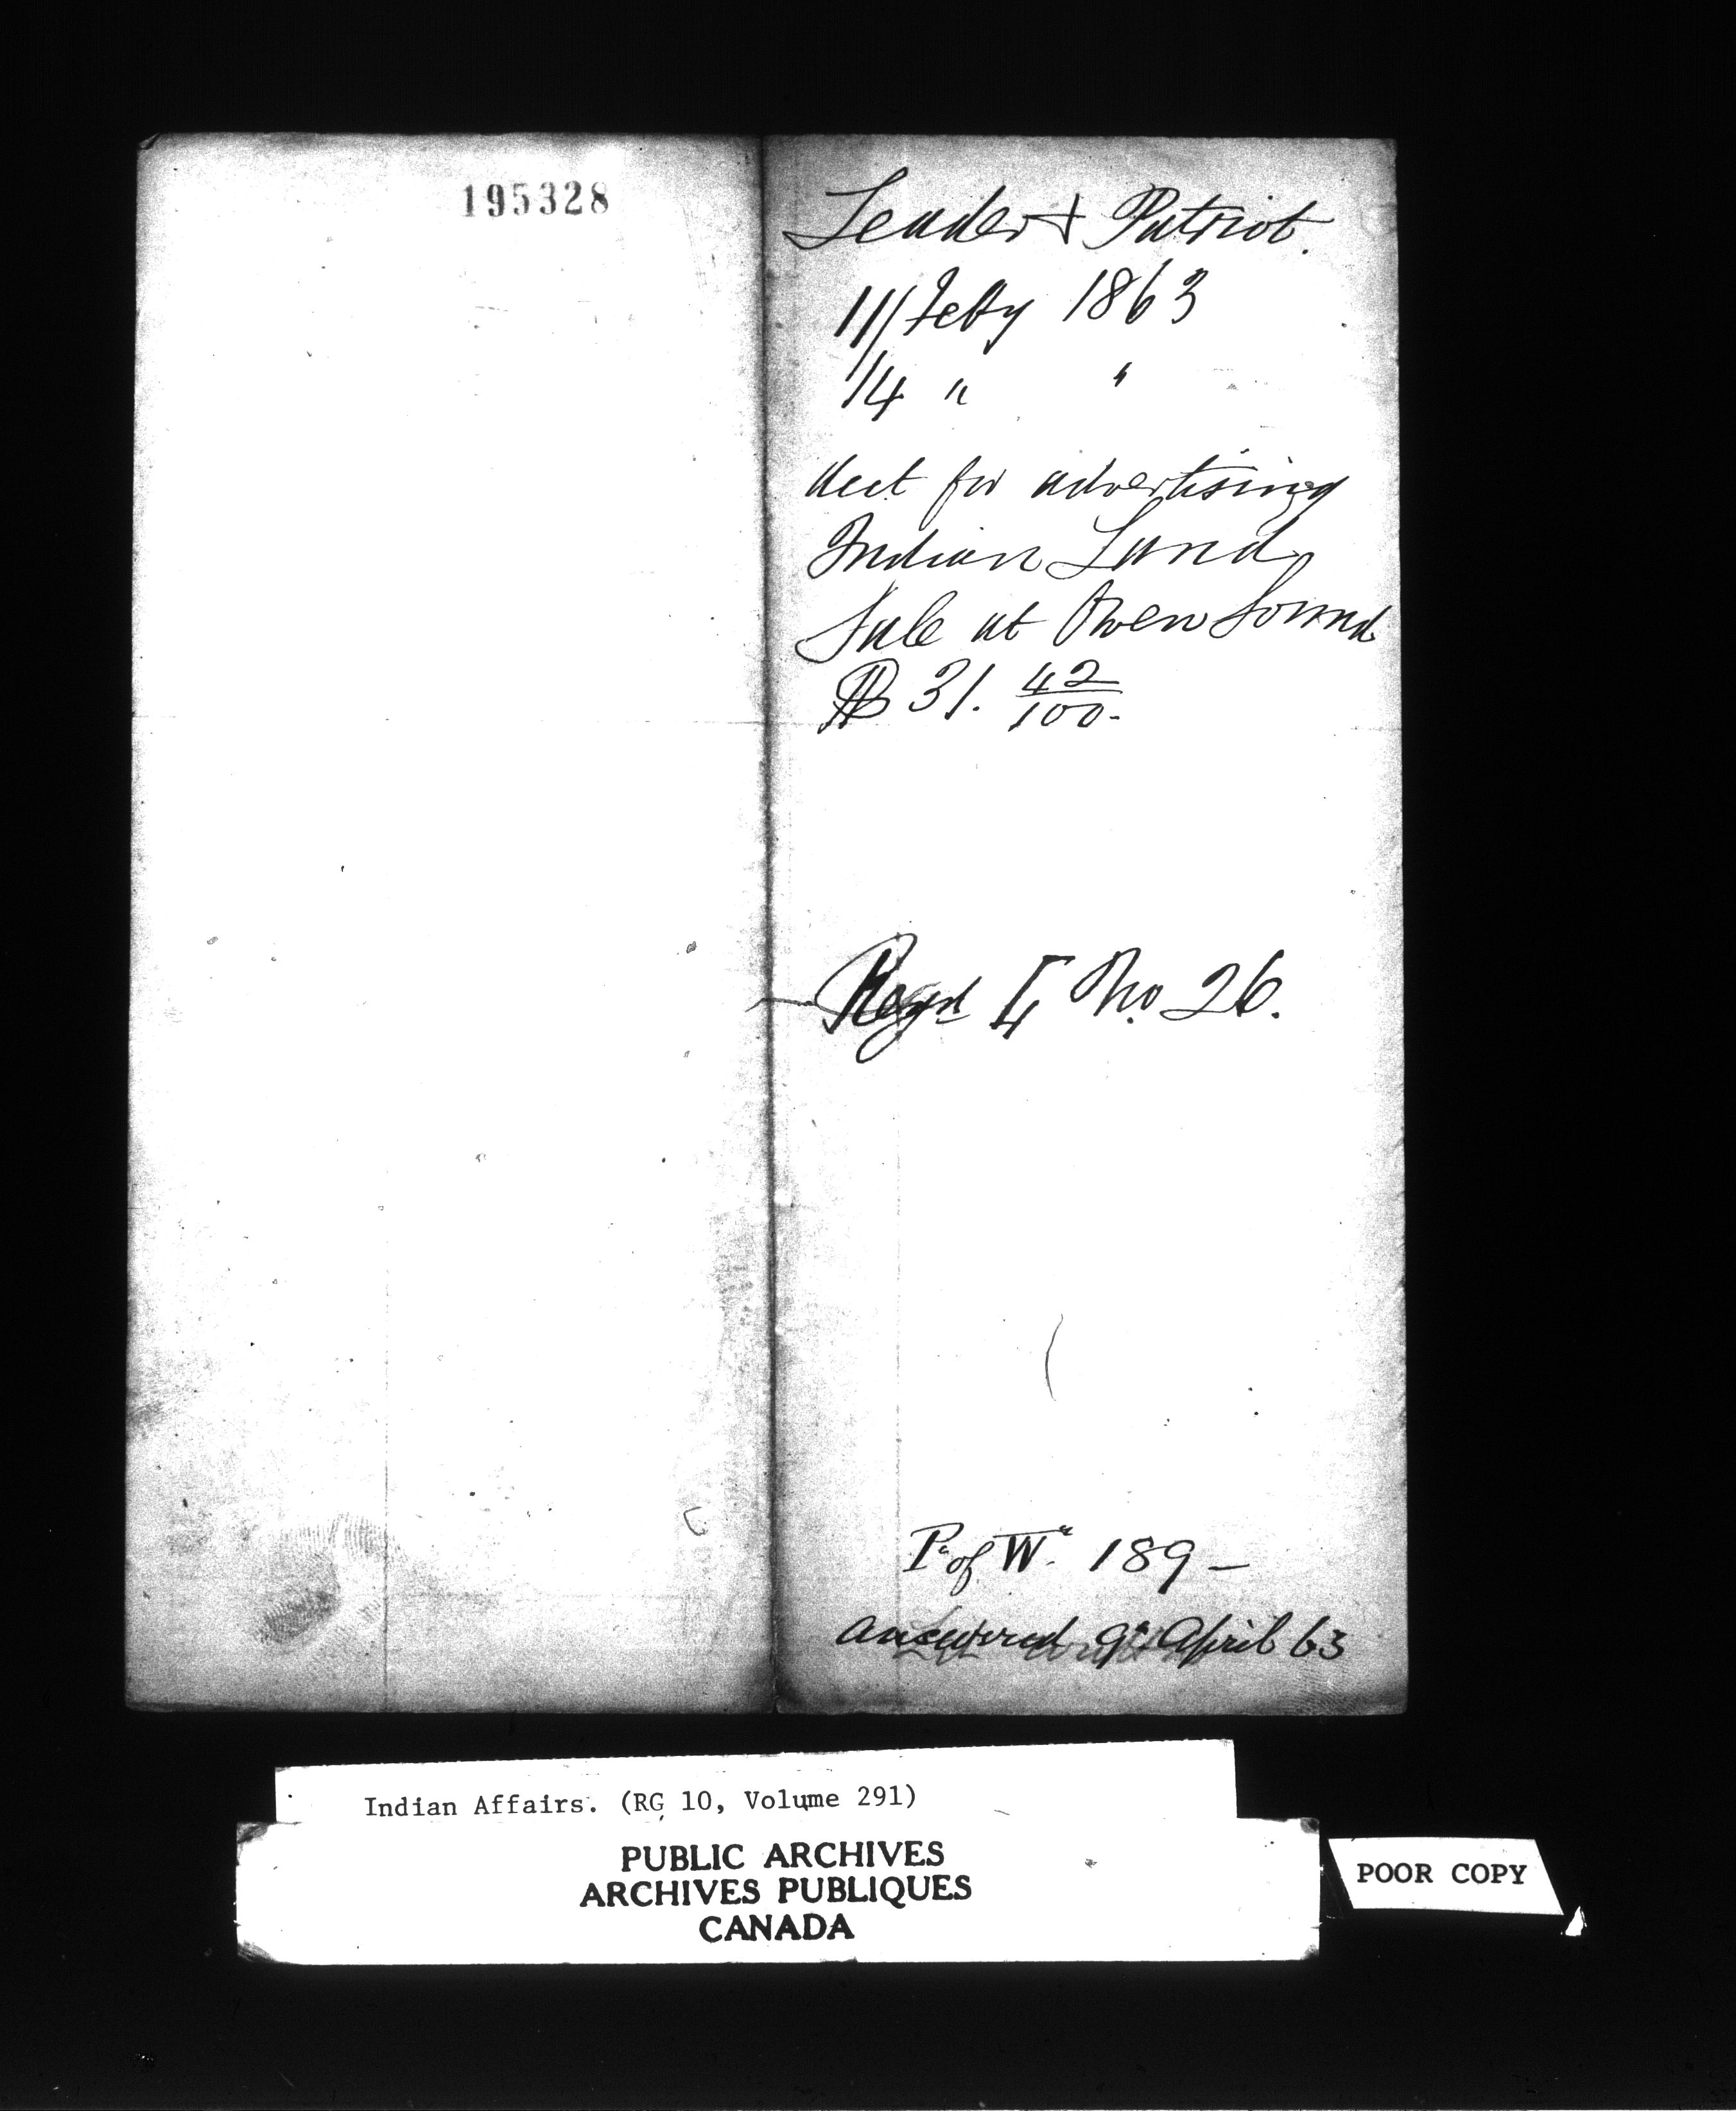 195328
Leader & Patriot.
11/ Feby 1863
14 " "
Acct for advertising
Indian Land
Sale at Owen Sound
$31. 42/100-
Regd No. 26.
P. of W. 189 -
answered 9th April 63
Indian Affairs. (RG 10, Volume 291)
PUBLIC ARCHIVES
ARCHIVES PUBLIQUES
CANADA
POOR COPY